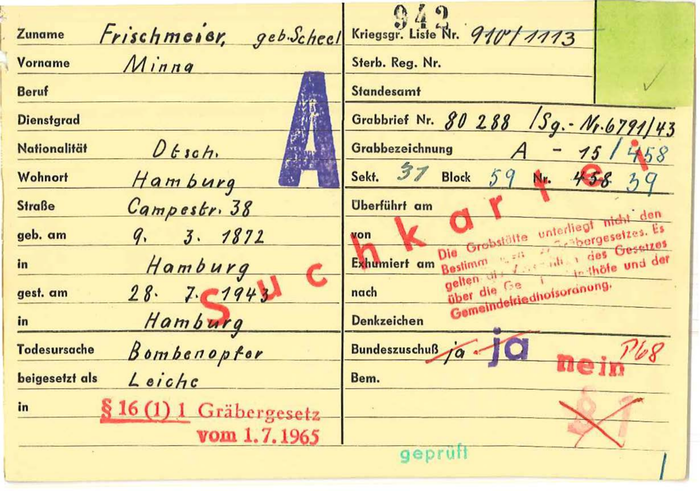 942
Zuname Frischmeier, geb. Scheel
Vorname Minna
Beruf
Dienstgrad
Nationalität Dtsch.
Wohnort Hamburg
Straße Campestr. 38
geb. am 9. 3. 1872
in Hamburg
gest. am 28. 7. 1943
in Hamburg
Todesursache Bombenopfer
beigesetzt als Leiche
in
§ 16 (1) 1 Gräbergesetz
vom 1.7.1965
A
Suchkartei
Kriegsgr. Liste Nr. 910/1113
Sterb. Reg. Nr.
Standesamt
Grabbrief Nr. 80 288 /Sg.-Nr. 6791/43
Grabbezeichnung A - 15/458
Sekt. 31 Block 59 Nr. 458 39
Überführt am
von
Exhumiert am
nach
Denkzeichen
Die Grabstätte unterliegt nicht den
Bestimm Gräbergesetzes. Es
gelten des Gesetzes
über die und der
Gemeindefriedhofsordnung.
Bundeszuschuß ja ja nein P68
Bem.
§ 1
geprüft